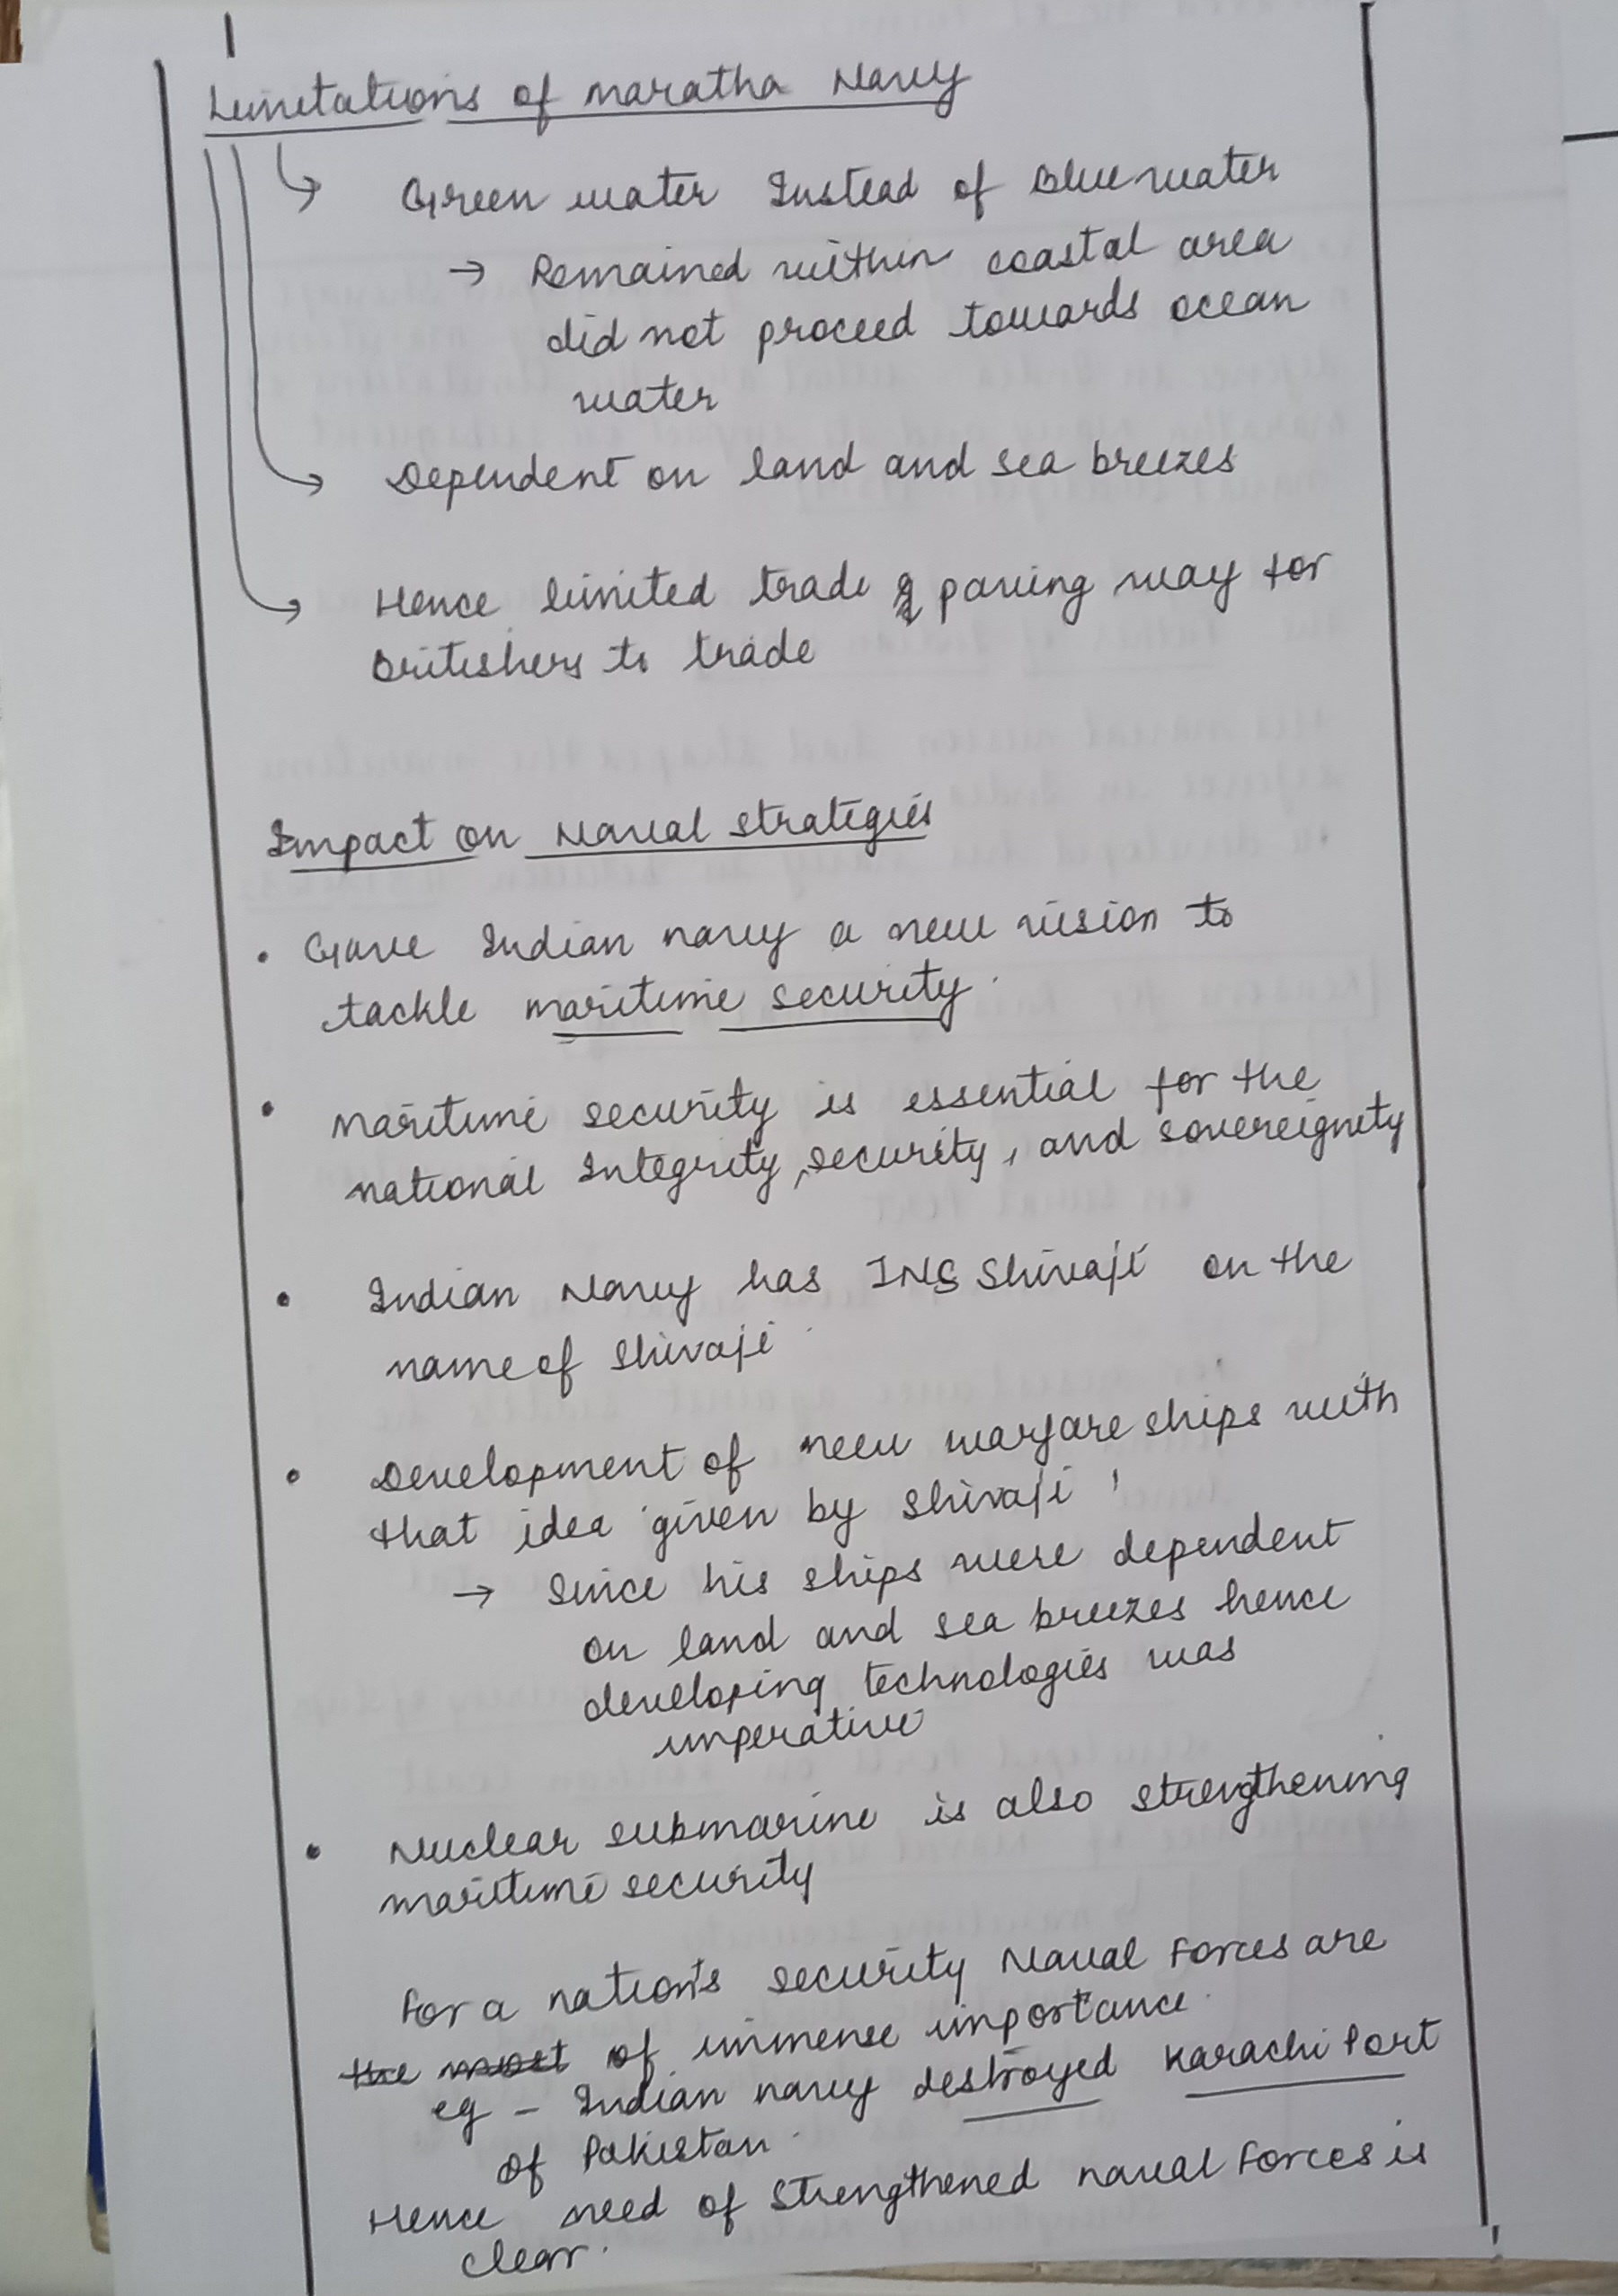 Limitations of Maratha Navy
Green water Instead of Blue water
→ Remained within coastal area
did not proceed towards ocean
water
Dependent on land and sea breezes
Hence limited trade & paving way for
Britishers to trade
Impact on Naval Strategies
• Gave Indian navy a new vision to
tackle maritime security.
• Maritime security is essential for the
national Integrity, security, and sovereignity
• Indian Navy has INS Shivaji on the
name of Shivaji.
• Development of new warfare ships with
that idea given by Shivaji!
→ Since his ships were dependent
on land and sea breezes hence
developing technologies was
imperative
• Nuclear submarine is also strengthening
maritime security
For a nation's security Naval Forces are
the most of immense importance.
eg - Indian navy destroyed Karachi Port
of Pakistan.
Hence need of strengthened naval Forces is
clear.